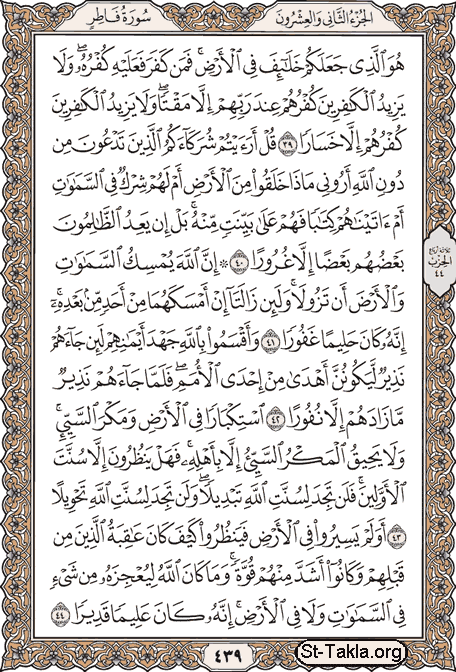 الجُزْءُ الثَّانِي وَالعِشْرُونَ
سُورَةُ فَاطِرٍ
هُوَ ٱلَّذِى جَعَلَكُمْ خَلَٰٓئِفَ فِى ٱلْأَرْضِ ۚ فَمَن كَفَرَ فَعَلَيْهِ كُفْرُهُۥ ۖ وَلَا
يَزِيدُ ٱلْكَٰفِرِينَ كُفْرُهُمْ عِندَ رَبِّهِمْ إِلَّا مَقْتًا ۖ وَلَا يَزِيدُ ٱلْكَٰفِرِينَ
كُفْرُهُمْ إِلَّا خَسَارًا ٣٩ قُلْ أَرَءَيْتُمْ شُرَكَآءَكُمُ ٱلَّذِينَ تَدْعُونَ مِن
دُونِ ٱللَّهِ أَرُونِى مَاذَا خَلَقُوا۟ مِنَ ٱلْأَرْضِ أَمْ لَهُمْ شِرْكٌ فِى ٱلسَّمَٰوَٰتِ
أَمْ ءَاتَيْنَٰهُمْ كِتَٰبًا فَهُمْ عَلَىٰ بَيِّنَتٍ مِّنْهُ ۚ بَلْ إِن يَعِدُ ٱلظَّٰلِمُونَ
بَعْضُهُم بَعْضًا إِلَّا غُرُورًا ٤٠ ۞ إِنَّ ٱللَّهَ يُمْسِكُ ٱلسَّمَٰوَٰتِ
وَٱلْأَرْضَ أَن تَزُولَا ۚ وَلَئِن زَالَتَآ إِنْ أَمْسَكَهُمَا مِنْ أَحَدٍ مِّنۢ بَعْدِهِۦٓ ۚ
إِنَّهُۥ كَانَ حَلِيمًا غَفُورًا ٤١ وَأَقْسَمُوا۟ بِٱللَّهِ جَهْدَ أَيْمَٰنِهِمْ لَئِن جَآءَهُمْ
نَذِيرٌ لَّيَكُونُنَّ أَهْدَىٰ مِنْ إِحْدَى ٱلْأُمَمِ ۖ فَلَمَّا جَآءَهُمْ نَذِيرٌ
مَّا زَادَهُمْ إِلَّا نُفُورًا ٤٢ ٱسْتِكْبَارًا فِى ٱلْأَرْضِ وَمَكْرَ ٱلسَّيِّئِ ۚ
وَلَا يَحِيقُ ٱلْمَكْرُ ٱلسَّيِّئُ إِلَّا بِأَهْلِهِۦ ۚ فَهَلْ يَنظُرُونَ إِلَّا سُنَّتَ
ٱلْأَوَّلِينَ ۚ فَلَن تَجِدَ لِسُنَّتِ ٱللَّهِ تَبْدِيلًا ۖ وَلَن تَجِدَ لِسُنَّتِ ٱللَّهِ تَحْوِيلًا
٤٣ أَوَلَمْ يَسِيرُوا۟ فِى ٱلْأَرْضِ فَيَنظُرُوا۟ كَيْفَ كَانَ عَٰقِبَةُ ٱلَّذِينَ مِن
قَبْلِهِمْ وَكَانُوٓا۟ أَشَدَّ مِنْهُمْ قُوَّةً ۚ وَمَا كَانَ ٱللَّهُ لِيُعْجِزَهُۥ مِن شَىْءٍ
فِى ٱلسَّمَٰوَٰتِ وَلَا فِى ٱلْأَرْضِ ۚ إِنَّهُۥ كَانَ عَلِيمًا قَدِيرًا ٤٤
الحزب
٤٤
٤٣٩
St-Takla.org